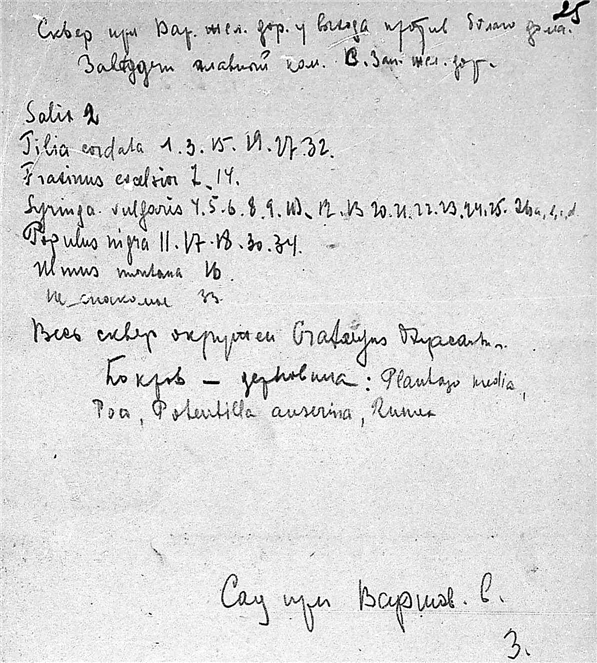 25
Сквер при Вар. жел. дор. у выхода против белаго дома.
Заведует главный ком. С. Зап. жел. дор.
Salix 2
Tilia cordata 1. 3. 15. 19. 27. 32.
Fraxinus excelsior 7. 14.
Syringa vulgaris 4. 5. 6. 8. 9. 10. 12. 13 20. 21. 22. 23. 24. 25. 26 a,
Populus nigra 11. 17. 18. 30. 34.
Ulmus montana 16.
33
Весь сквер окружен Crataegus Oxyacanth.
Покров — дерновина: Plantago media,
Poa, Potentilla anserina, Rumex
Сад при Варшов. в.
3.